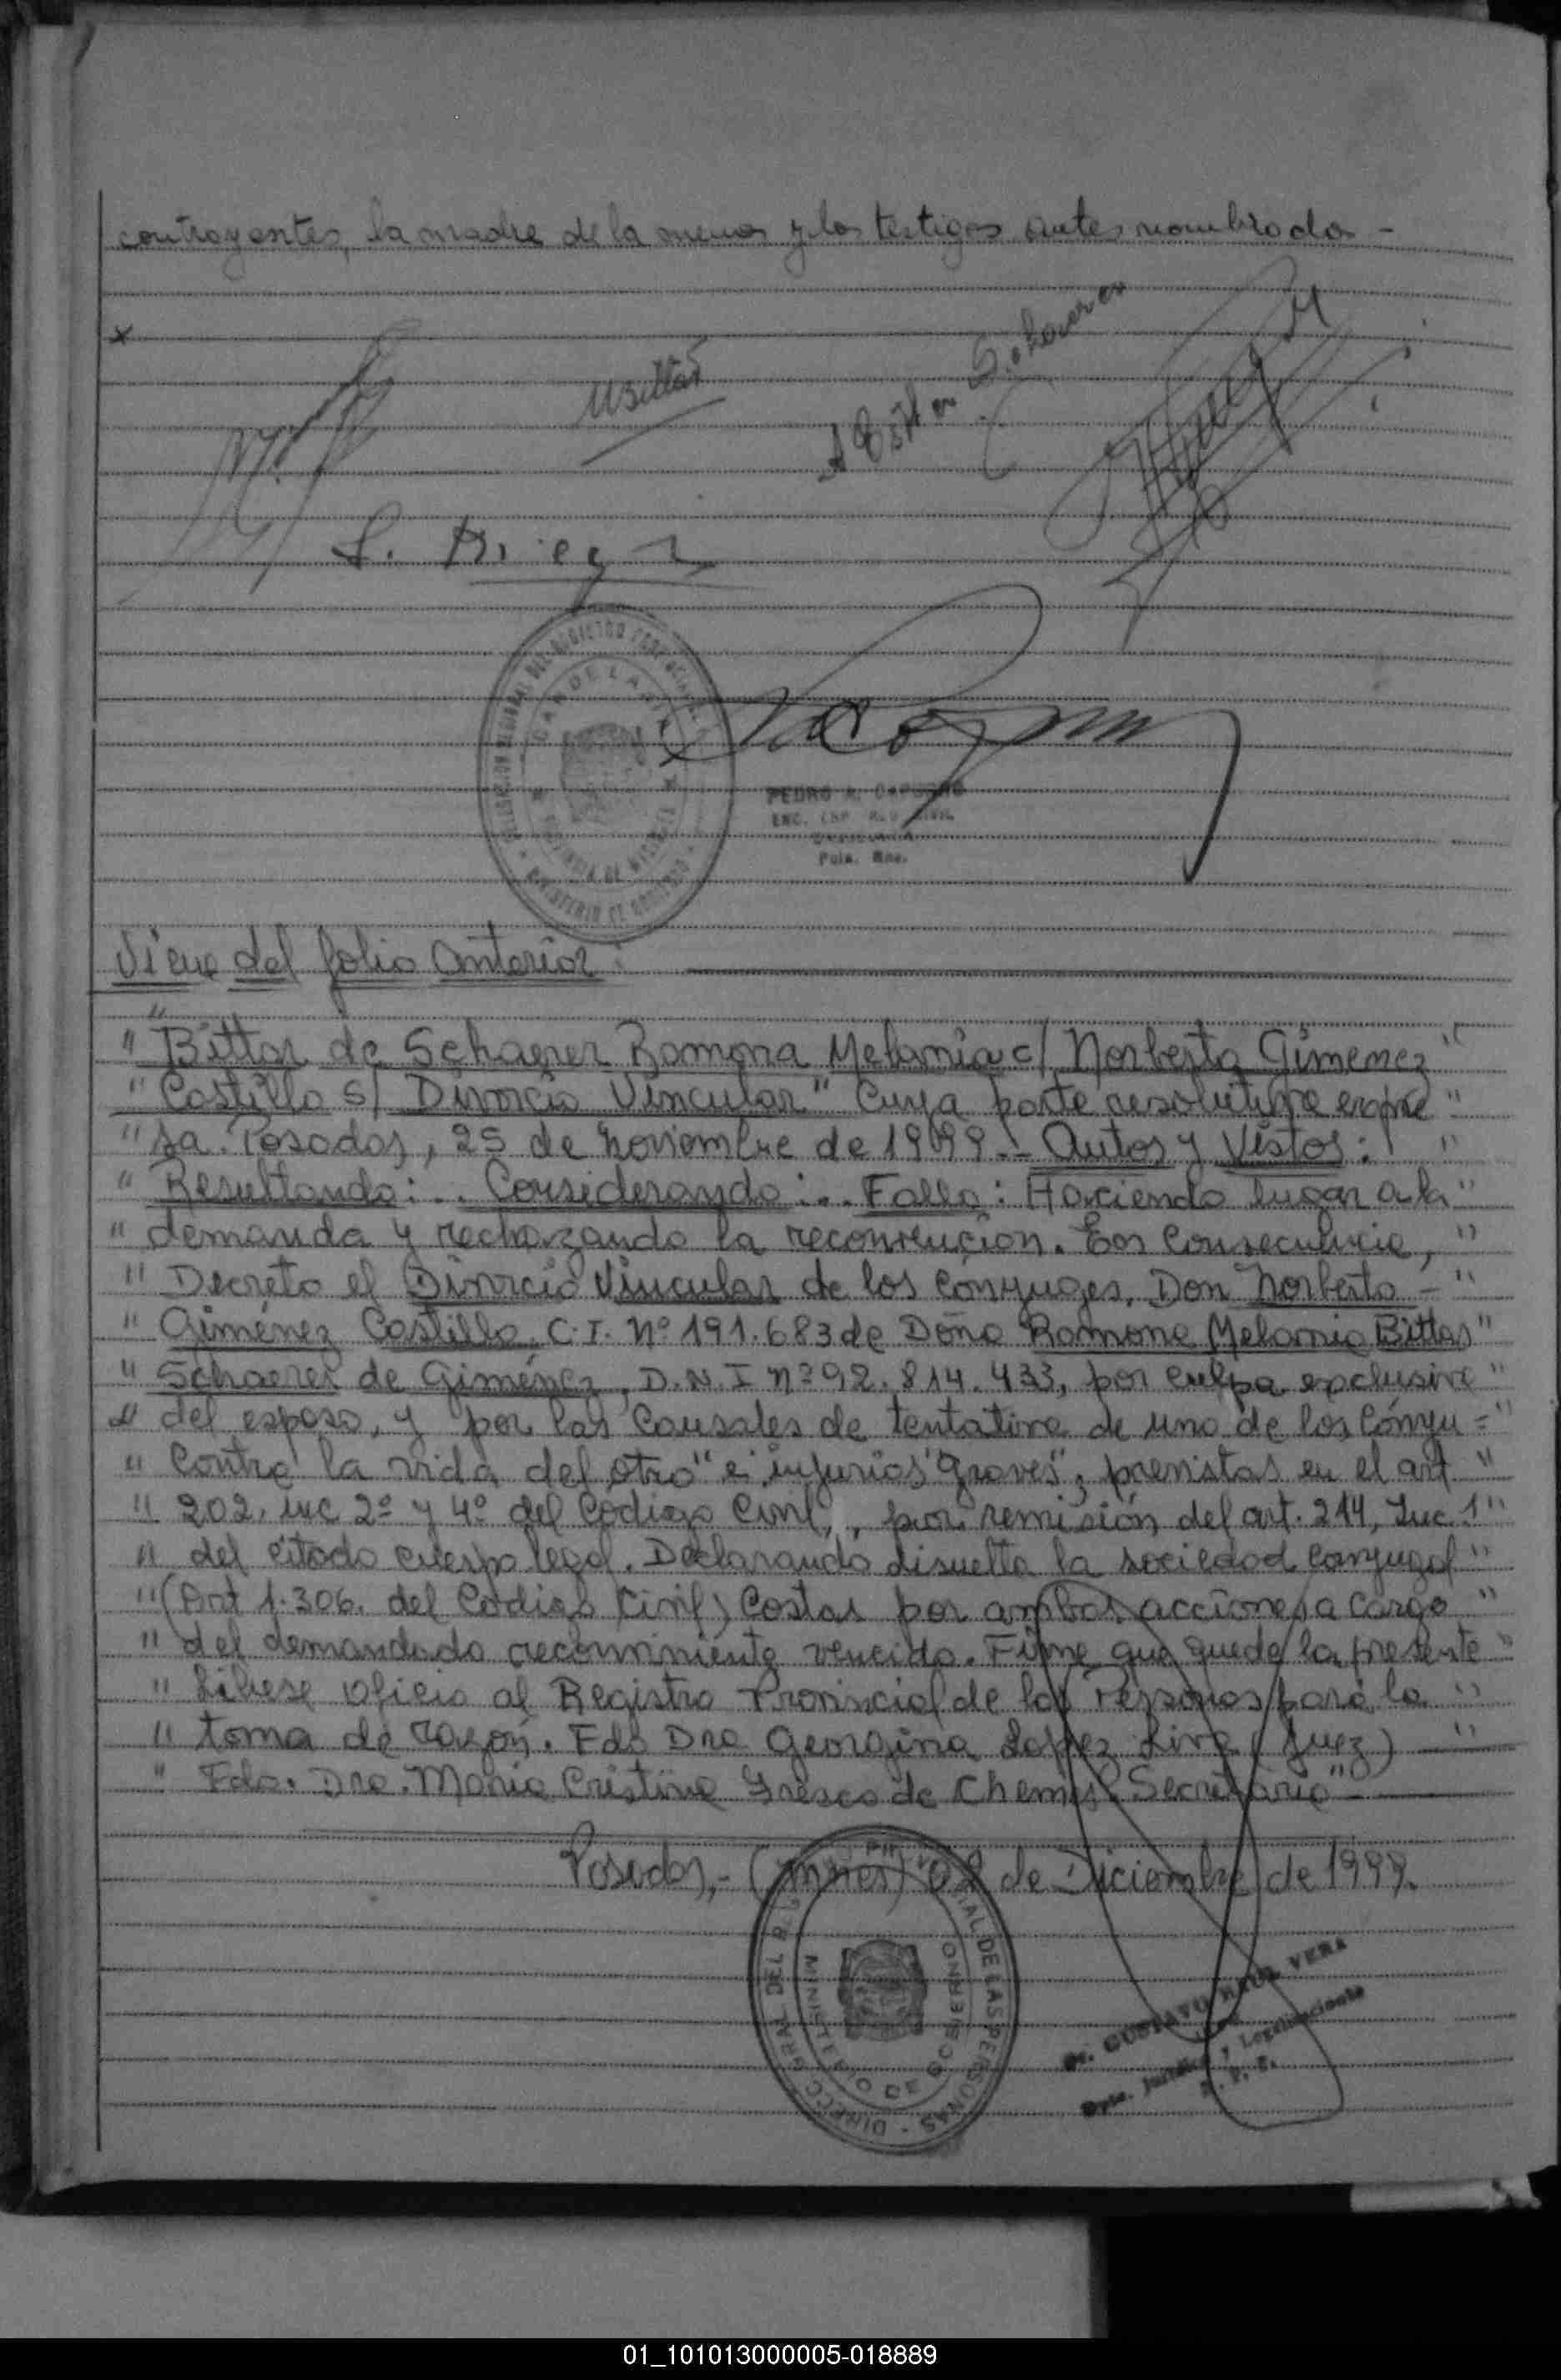 contrayentes, la madre de la menor y los testigos antes nombrados -
x
MBittar
S. Schaerer
VIENE DEL REGISTRO PROVINCIAL
CANDELARIA
PROVINCIA DE MISIONES
MINISTERIO DE GOBIERNO
PEDRO A.
ENC. REG. CIVIL
CANDELARIA
Pcia. Mnes.
Viene del folio anterior:
" Bittar de Schaerer Ramona Melania c/ Norberto Gimenez "
" Castillo s/ Divorcio Vincular" Cuya parte resolutiva expre "
" sa. Posadas, 25 de noviembre de 1999.- Autos y Vistos: "
" Resultando:... Considerando:... Fallo: Haciendo lugar a la "
" demanda y rechazando la reconvención. En Consecuencia, "
" Decreto el Divorcio Vincular de los cónyuges, Don Norberto - "
" Giménez Castillo C.I. Nº 191.683 de Doña Ramona Melania Bittar "
" Schaerer de Giménez, D.N.I nº 92.814.433, por culpa exclusiva "
" del esposo, y por las Causales de tentativa de uno de los Cónyu = "
" Contra la vida del otro" e "injurias graves", previstas en el art "
" 202, inc 2º y 4º del Codigo Civil, , por remisión del art. 214, Inc. 1 "
" del citado cuerpo legal. Declarando disuelta la sociedad conyugal "
" (Art 1.306. del Codigo Civil) Costas por ambas acciones a cargo "
" del demandado reconviniente vencido. Firme que quede la presente "
" Líbrese oficio al Registro Provincial de las Personas para la "
" toma de razón. Fdo Dra Georgina Lopez Liva (Juez) "
" Fdo. Dra. Maria Cristina Fresco de Chemes Secretaria" -
Posadas,- (Mnes) 02 de Diciembre de 1999.
DIRECC. GRAL DEL REG. PROVINCIAL DE LAS PERSONAS
MINISTERIO DE GOBIERNO
Dr. GUSTAVO RAUL VERA
Dpto. Jurídico y Legalizaciones
R. P. P.
01_101013000005-018889